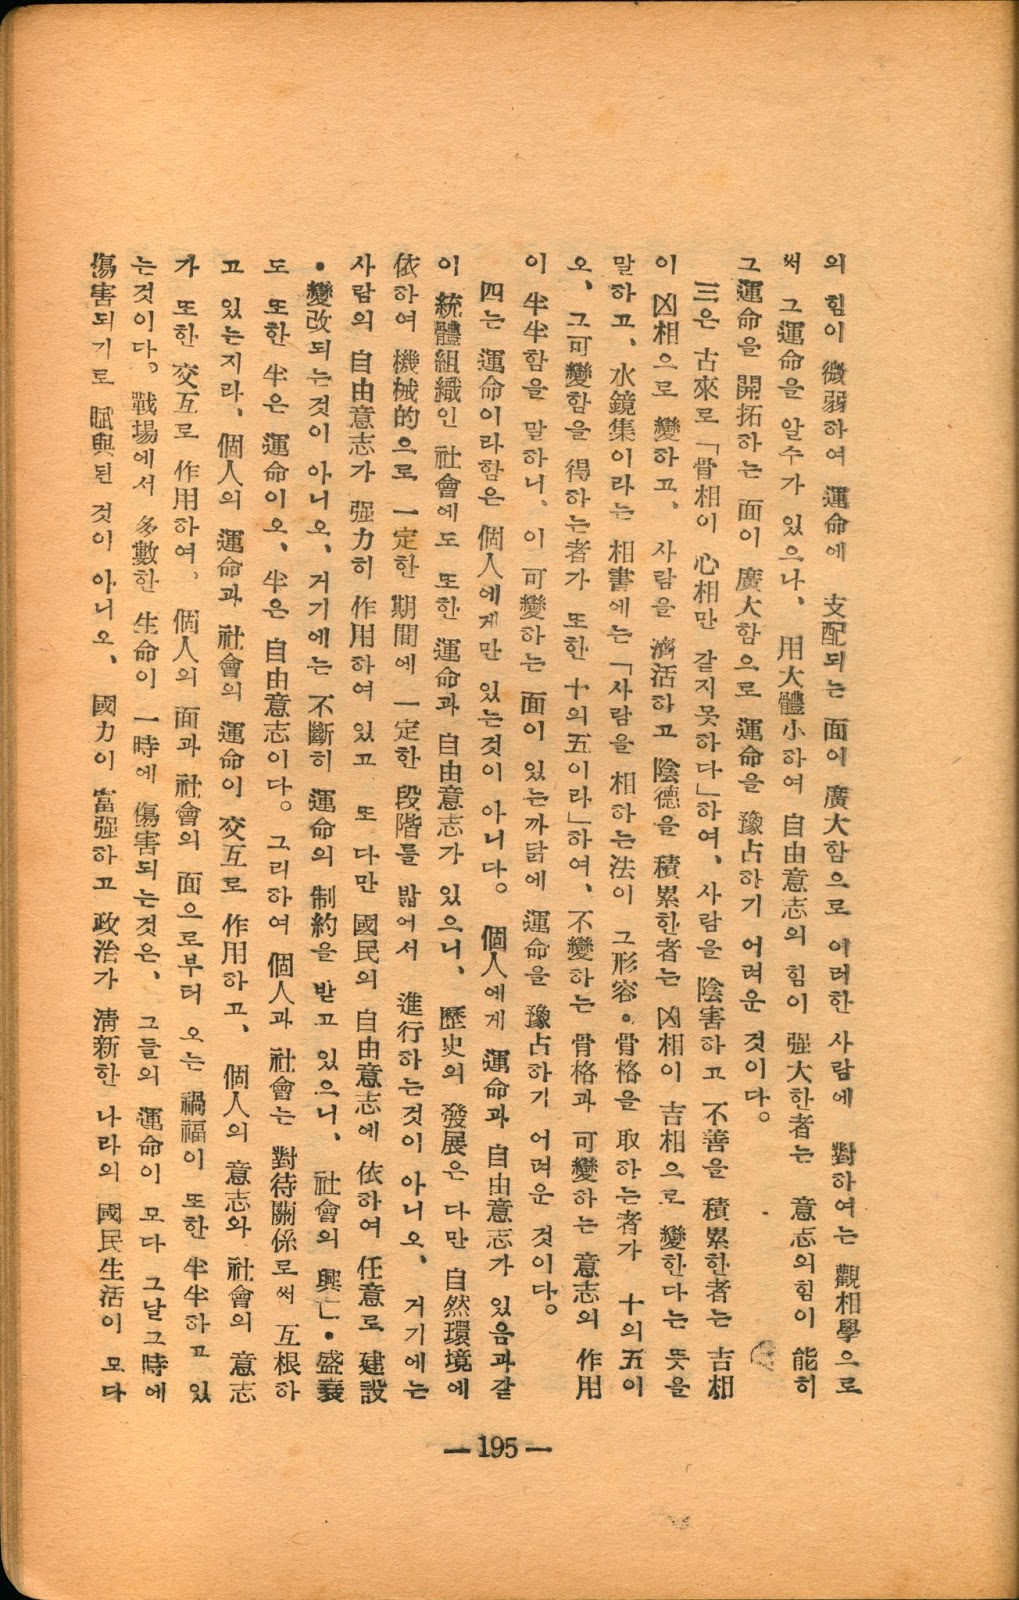 의 힘이 微弱하여 運命에 支配되는 面이 廣大함으로 이러한 사람에 對하여는 觀相學으로
써 그運命을 알수가 있으나、 用大體小하여 自由意志의 힘이 强大한者는 意志의힘이 能히
그運命을 開拓하는 面이 廣大함으로 運命을 豫占하기 어려운 것이다。
三은 古來로「骨相이 心相만 같지못하다」하여、사람을 陰害하고 不善을 積累한者는 吉相
이 凶相으로 變하고、 사람을 濟活하고 陰德을 積累한者는 凶相이 吉相으로 變한다는 뜻을
말하고、水鏡集이라는 相書에는「사람을 相하는法이 그形容•骨格을 取하는者가 十의五이
오、그可變함을 得하는者가 또한 十의五이라」하여、不變하는 骨格과 可變하는 意志의 作用
이 半半함을 말하니、이可變하는 面이 있는까닭에 運命을 豫占하기 어려운 것이다。
四는 運命이라함은 個人에게만 있는것이 아니다。 個人에게 運命과 自由意志가 있음과같
이 統體組織인 社會에도 또한 運命과 自由意志가 있으니、 歷史의 發展은 다만 自然環境에
依하여 機械的으로 一定한 期間에 一定한 段階를 밟어서 進行하는것이 아니오、 거기에는
사람의 自由意志가 强力히 作用하여 있고 또 다만 國民의 自由意志에 依하여 任意로 建設
•變改되는것이 아니오、거기에는 不斷히 運命의 制約을 받고 있으니、 社會의 興亡•盛衰
도 또한 半은 運命이오、半은 自由意志이다。그리하여 個人과 社會는 對待關係로써 互根하
고 있는지라、個人의 運命과 社會의 運命이 交互로 作用하고、 個人의 意志와 社會의 意志
가 또한 交互로 作用하여、 個人의 面과 社會의 面으로부터 오는 禍福이 또한 半半하고 있
는것이다。戰場에서 多數한 生命이 一時에 傷害되는것은、 그들의 運命이 모다 그날그時에
傷害되기로 賦與된 것이 아니오、 國力이 富强하고 政治가 淸新한 나라의 國民生活이 모다
— 195 —